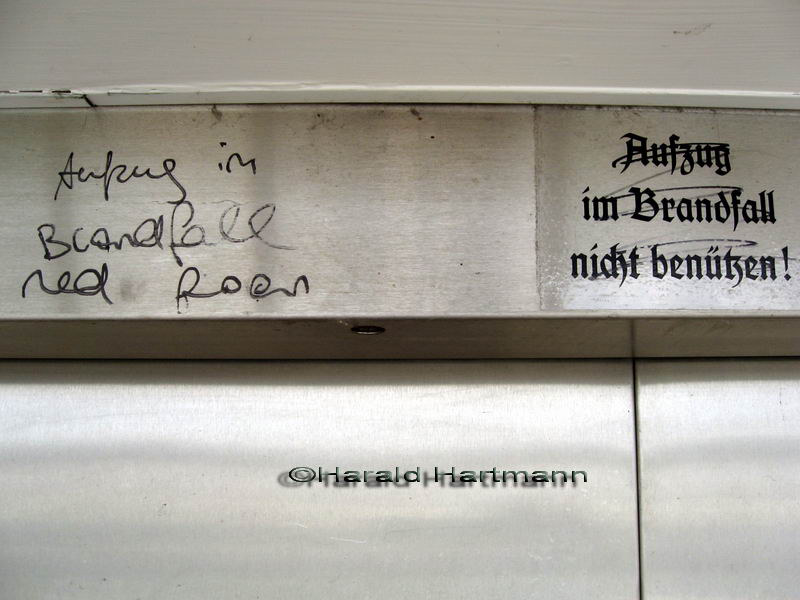 Aufzug im
Brandfall
ned foan
Aufzug
im Brandfall
nicht benützen!
©Harald Hartmann